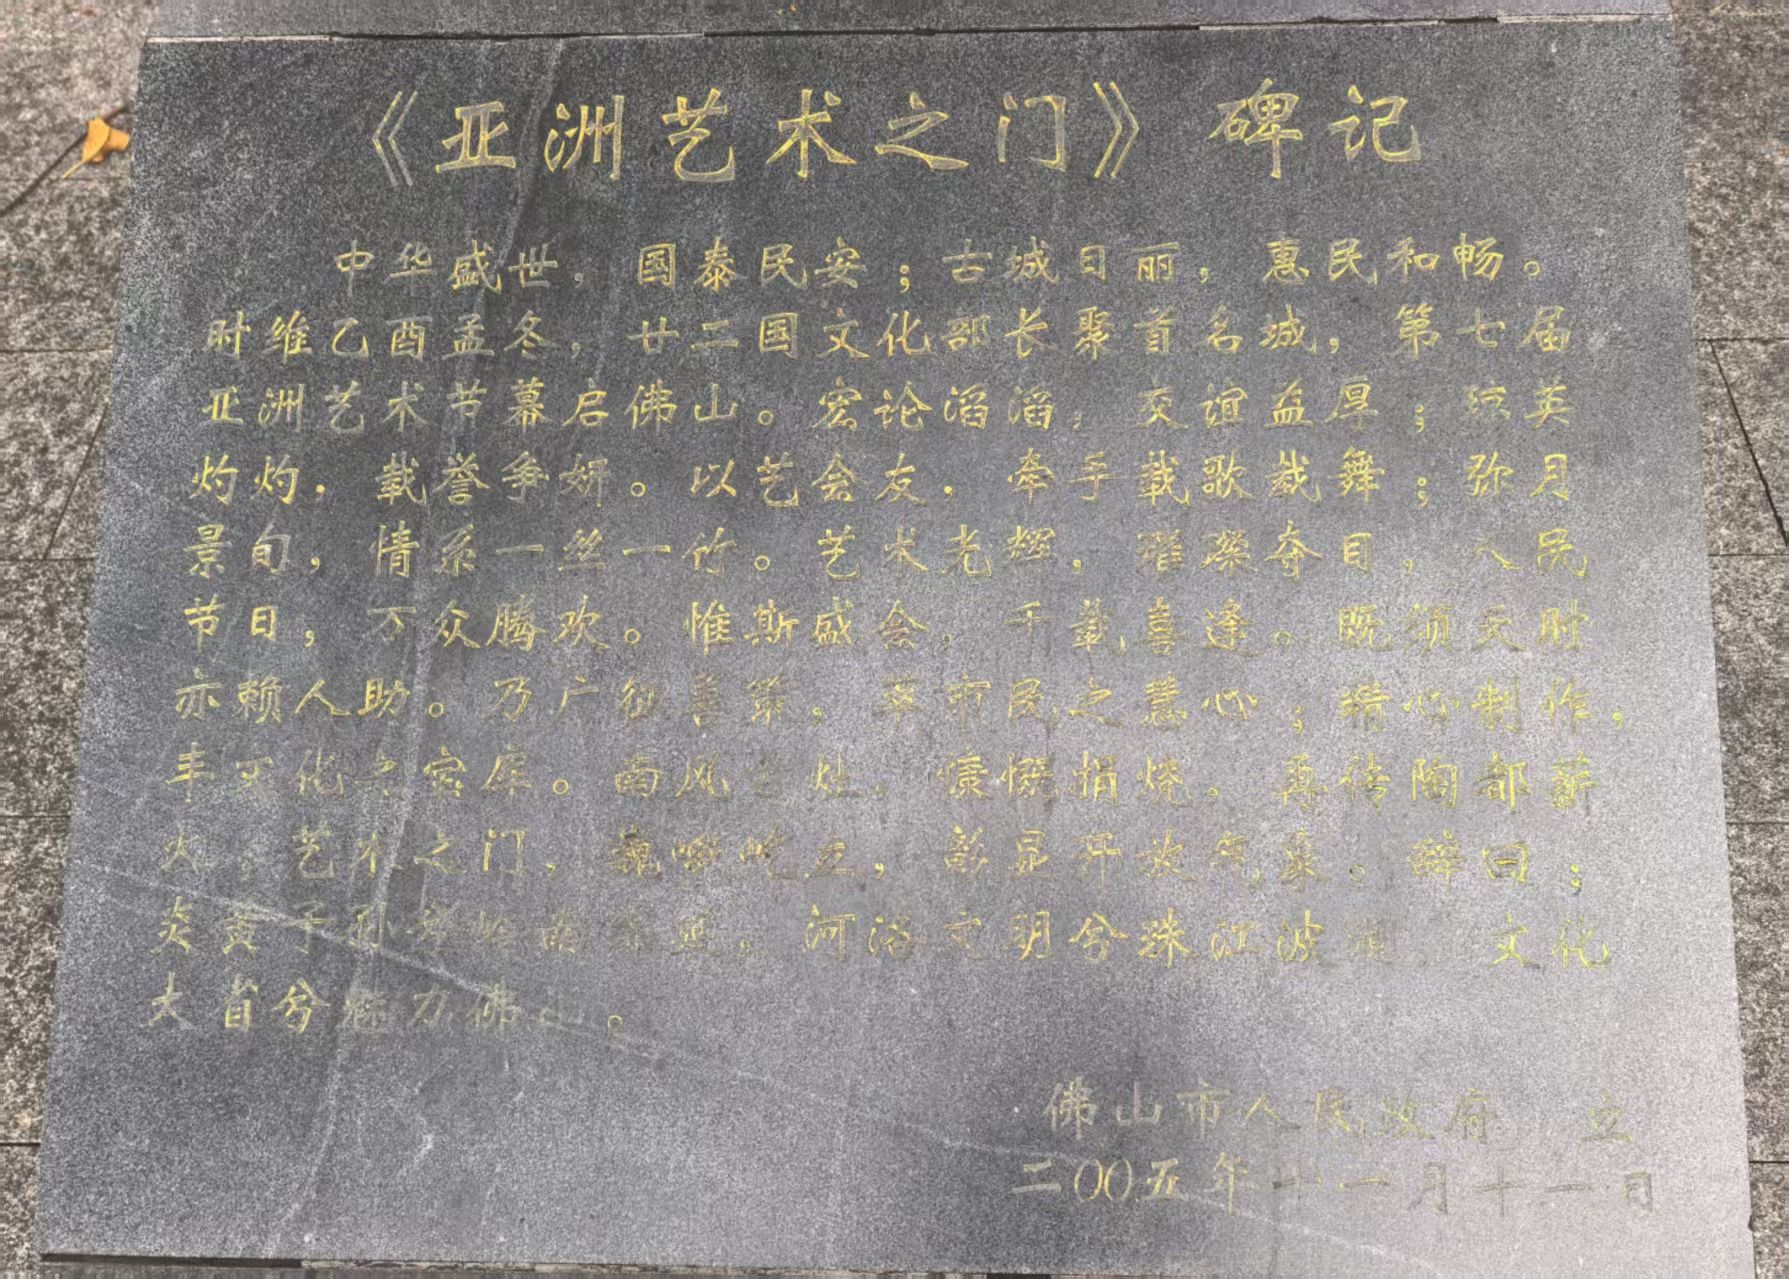 《亚洲艺术之门》碑记
中华盛世，国泰民安；古城日丽，惠民和畅。
时维乙酉孟冬，廿二国文化部长聚首名城，第七届
亚洲艺术节幕启佛山。宏论滔滔，交谊益厚；英
灼灼，载誉争妍。以艺会友，牵手载歌载舞；弥月
景旬，情系一丝一竹。艺术光辉，璀璨夺目，人民
节日，万众腾欢。惟斯盛会，千载喜逢。既须天时
亦赖人助。乃广征善策，萃市民之慧心；精心制作，
丰文化之宝库。南风古灶，慷慨捐烧，再传陶都薪
火；艺术之门，巍峨屹立，彰显开放气象。辞曰：
炎黄子孙兮，河洛文明兮珠江波涌，文化
大省兮魅力佛山。
佛山市人民政府 立
二00五年十一月十一日